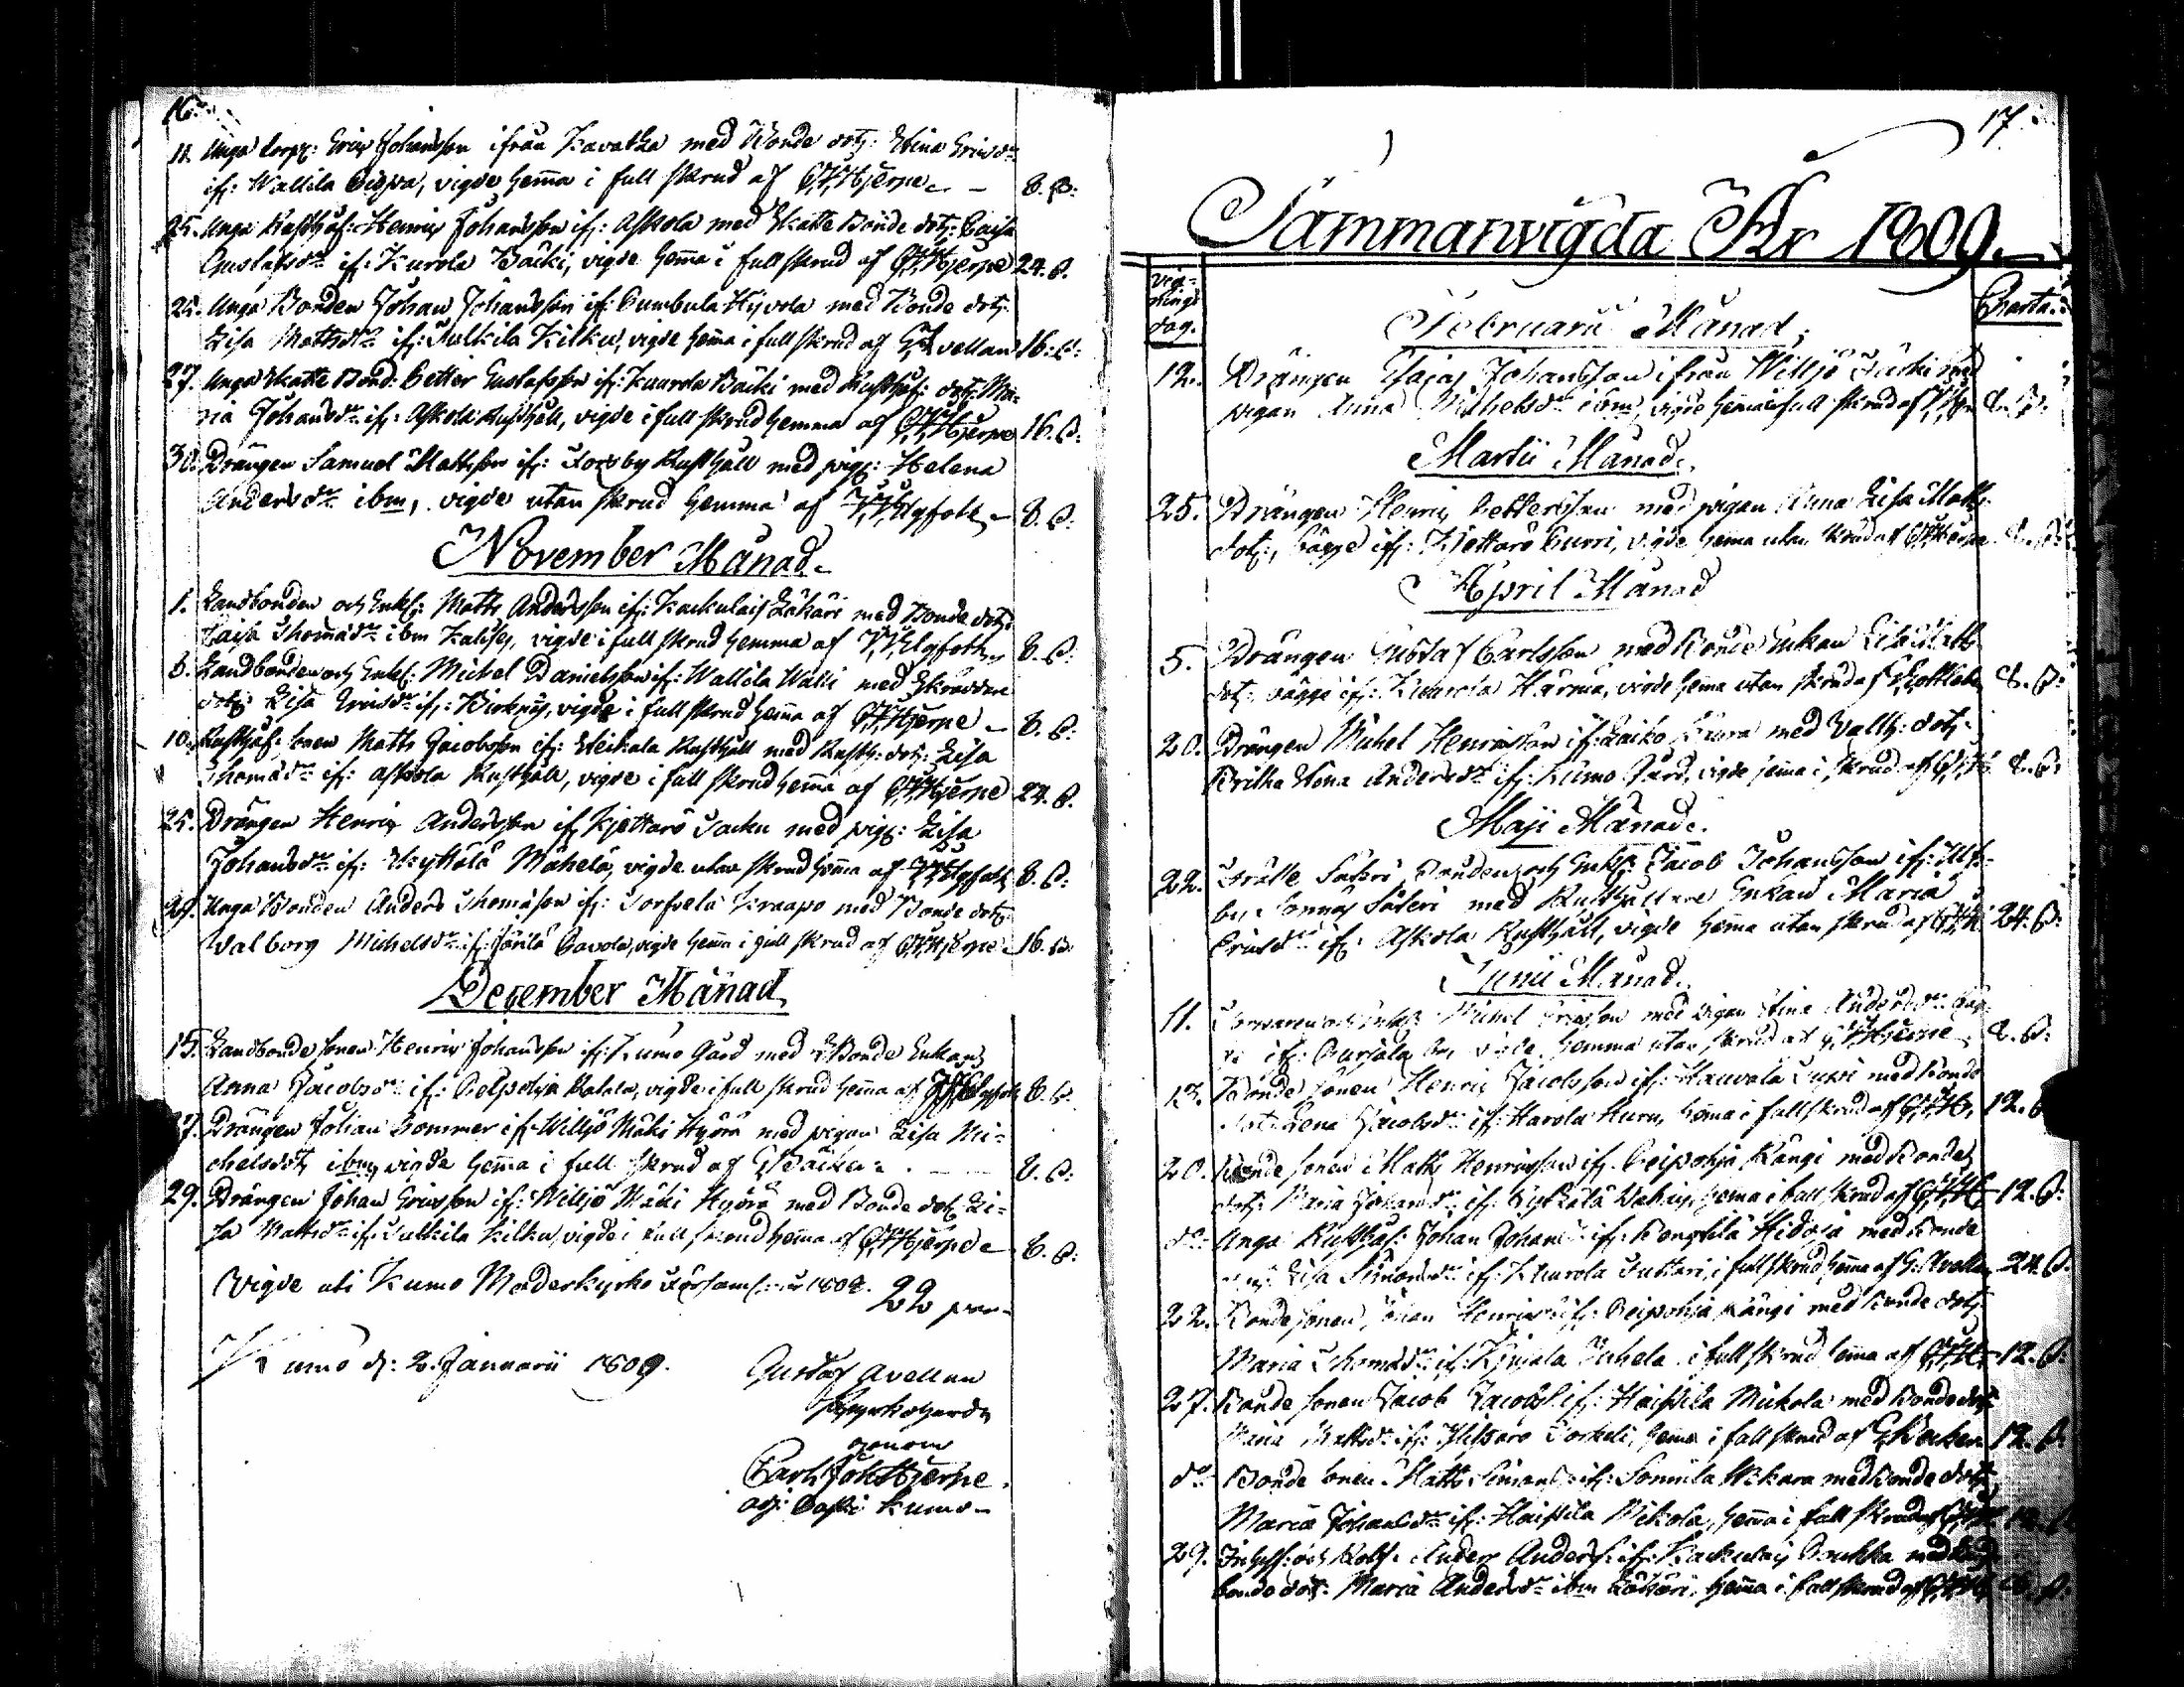 16.
11. Unga Torp: Eric Johansson ifrån Kavalka med Bonde dotr: Stina Ericsdr
if: Wallila Sippa, vigde hemma i full skrud af C.J. Hjerpe 8. s:
25. Unga Rusthål: Henric Johansson if: Askola med Skatte Bonde dotr: Caisa
Gustafsdr if: Kurola Bäcki, vigde hema i full skrud af C.J. Hjerpe 24. s.
25. Unga Bonden Johan Johansson if: Cumbula Hyvola med Bonde dotr
Lisa Mattsdr if: Sulkila Kilku, vigde hema i full skrud af G. Avellan 16. s:
27. Unga Skatte Bond: Petter Gustafsson if: Kuurola Bäcki med Rusthål: dotr: Ma-
ria Johansdr if: Askola Rusthåll, vigde i full skrud hemma af C.J. Hjerpe 16. s:
30. Drängen Samuel Mattsson if: Forsby Rusthåll med pig: Helena
Andersdr ibm, vigde utan skrud hemma af Elgfoth 8. s:
November Månad.
1. Landbonden och Enkl: Matts Andersson if: Kackulais Läkäri med Bonde dotr
Caisa Thomasdr ibm, vigde i full skrud hemma af Elgfoth 8. s:
Landbonden och Enkl: Michel Danielsson if: Wallila Walli med Skräddare
dotr: Lisa Ericsdr if:, vigde i full skrud hema af C.J. Hjerpe 8. s:
10. Rusthål: sonen Matts Jacobsson if: Rusthåll med Rusth: dotr: Lisa
Thomasdr if: Askola Rusthåll, vigde i full skrud hema af C.J. Hjerpe 24. s.
25. Drängen Henric Andersson if: Kjettarö Sacku med pig: Lisa
Johansdr if: Kyttälä Mähelä, vigde utan skrud hema af Elgfoth 8. s:
29. Unga Bonden Anders Thomasson if: Torfvela Kraapo med Bonde dotr
Valborg Michelsdr if: Pavola, vigde hema i full skrud af C.J. Hjerpe 16. s.
December Månad
15. Landbonde sonen Henric Johansson if: Kumo Gård med Bonde Enkan
Anna Jacobsdr if:, vigde i full skrud hema af Elgfoth 8. s.
27. Drängen Johan Sommer if: Willjö Mäki Hyörä med pigan Lisa Mi-
chelsdotr ibm, vigde hema i full skrud af G. Bäcker 8. s:
29. Drängen Johan Ericsson if: Willjö Mäki Hyörä med Bonde dotr Li-
sa Mattsdr if: Sulkila Kilku, vigde i full skrud hema af C.J. Hjerpe 8. s:
Vigde uti Kumo Moderkyrko Församl: år 1808. 22 par
Kumo d: 2. Januarii 1809. Gustaf Avellan
Kyrkoherde
genom
Carl Joh Hjerpe.
adj: Past: i Kumo
17.
Sammanvigda År 1809.
vig-
nings
dag.
Charta.
Februarii Månad,
12. Drängen Esaias Johansson ifrån Willjö
pigan Anna Michelsdr ibm, vigde hema i full skrud af 8. s.
Martii Månad.
25. Drängen Henric Pettersson med pigan Anna Lisa Matts
dotr, bägge if: Kjettarö Curri, vigde hema utan skrud af C.J. Hjerpe 8. s:
April Månad
5. Drängen Gustaf Carlsson med Bonde Enkan Lisa Matts
dotr: bägge if: Kuurola Härmä, vigde hema utan skrud af 8. s:
20. Drängen Michel Henricsson if: Laiko med dotr.
Britha Stina Andersdr if: Kumo Gård, vigde hema i skrud af C.J.H. 8. s:
Maji Månad.
22. Frälse Säteri Bonden och Enkl: Jacob Johansson if:
Säteri med Rusthållare Enkan Maria
Ericsdr if: Askola Rusthåll, vigde hema utan skrud af C.J.H. 24. s:
Junii Månad.
11. Torparen och Enkl: Michel Ericsson med pigan Stina Andersdr bäg-
ge if:, vigde hemma utan skrud af C.J. Hjerpe 8. s:
13. Bonde sonen Henric Jacobsson if: Haurola med Bonde
dotr: Lena Jacobsdr if: Harola, hema i full skrud af C.J.H. 12. s
20. Bonde sonen Matts Henricsson if: Peipohja Kängi med Bonde
dotr: Maria Johansdr if:, hema i full skrud af C.J.H. 12. s:
do: Unga Rusthål: Johan Johans: if: Hidoja med Bonde
dotr: Lisa Simonsdr if: Kuurola Tuttari, i full skrud hema af G. Avellan 24. s.
22. Bonde sonen Johan Henrics: if: Peipohja Kängi med Bonde dotr
Maria Thomasdr if: Juhela i full skrud hema af C.J.H. 12. s:
27. Bonde sonen Jacob Jacobs: if: Haistila Mickola med Bonde dotr:
Maria Mattsdr if: Torkeli, hema i full skrud af G. Bäcker 12. s.
do: Bonde sonen Matts Simons: if: Sonnila med Bonde dotr
Maria Johansdr if: Haistila Mikola, hema i full skrud af 12. s.
29. och Anders Anders: if: Kackulais med Land-
bonde dotr: Maria Andersdr ibm Läkäri, hema i full skrud af